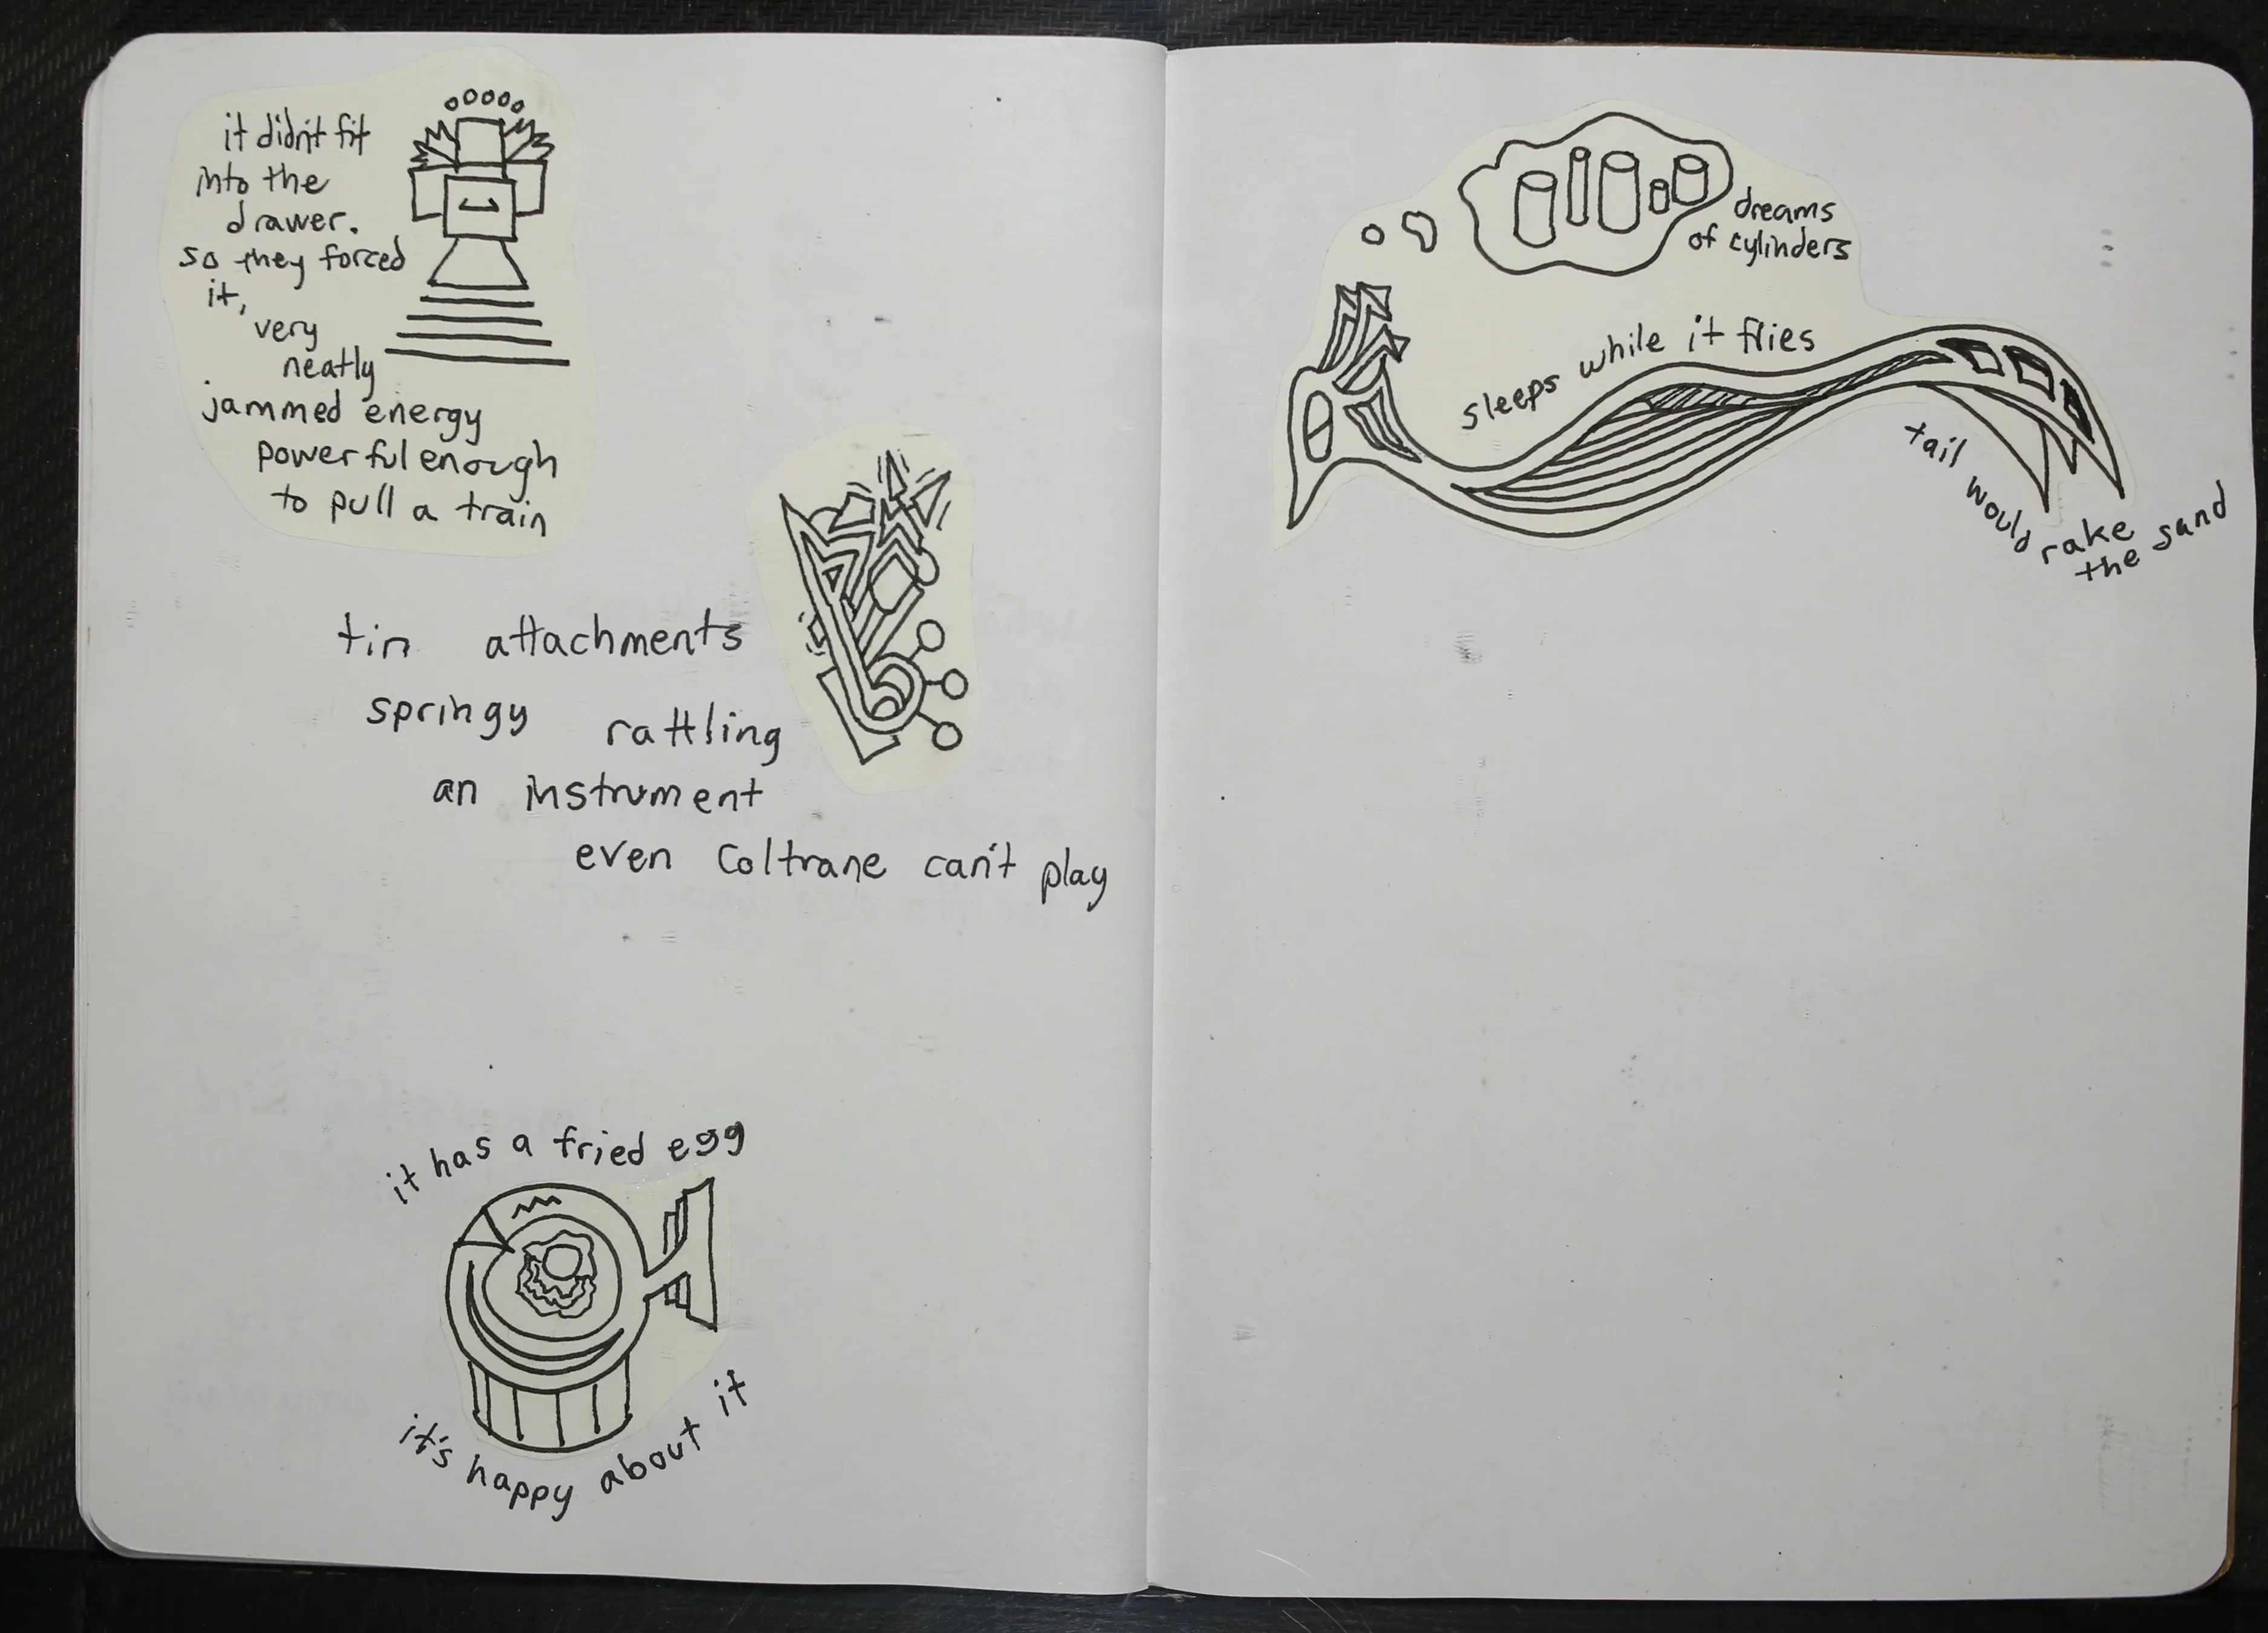 it didn't fit
into the
drawer.
so they forced
it,
very
neatly
jammed energy
powerful enough
to pull a train
tin attachments
springy rattling
an instrument
even Coltrane can't play
it has a fried egg
it's happy about it
dreams
of cylinders
sleeps while it flies
tail would rake
the sand